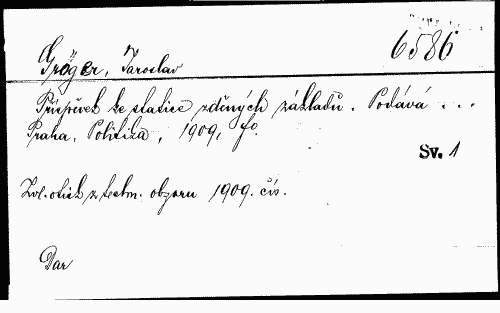 6586
Gröger, Jaroslav
Příspěvek ke statice zděných základů. Podává ...
Praha, Politika, 1909, fo.
Sv. 1
Zvl. otisk z techn. obzoru 1909. čís.
Dar